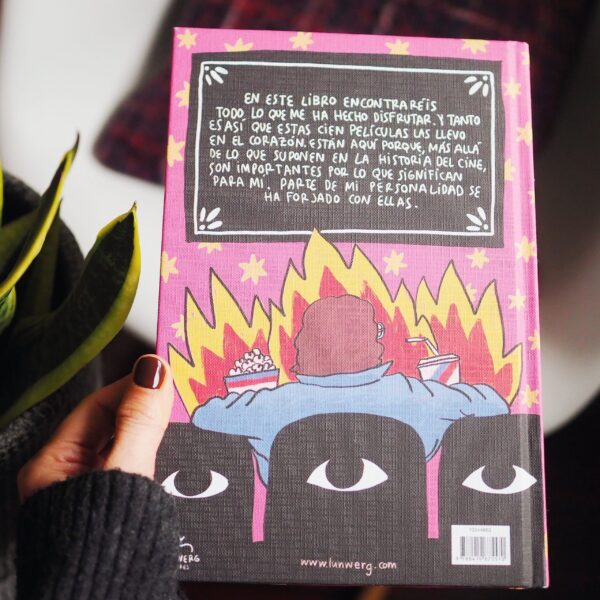 EN ESTE LIBRO ENCONTRARÉIS
TODO LO QUE ME HA HECHO DISFRUTAR. Y TANTO
ES ASÍ QUE ESTAS CIEN PELÍCULAS LAS LLEVO
EN EL CORAZÓN. ESTÁN AQUÍ PORQUE, MÁS ALLÁ
DE LO QUE SUPONEN EN LA HISTORIA DEL CINE,
SON IMPORTANTES POR LO QUE SIGNIFICAN
PARA MI. PARTE DE MI PERSONALIDAD SE
HA FORJADO CON ELLAS.
www.lunwerg.com